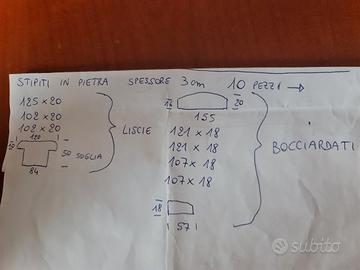 STIPITI IN PIETRA SPESSORE 3 cm 10 PEZZI →
125 x 20
102 x 20
102 x 20
120
50 SOGLIA
84
LISCIE
20
155
121 x 18
121 x 18
107 x 18
107 x 18
18
57
BOCCIARDATI
subito